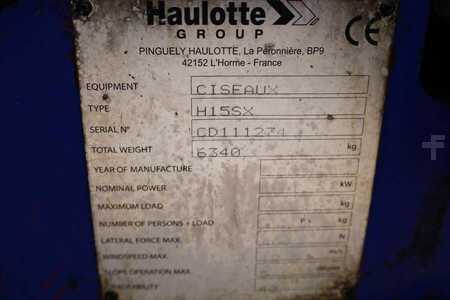 Haulotte
GROUP
CE
PINGUELY HAULOTTE, La Péronnière, BP9
42152 L'Horme - France
EQUIPMENT CISEAUX
TYPE H15SX
SERIAL N° CD111274
TOTAL WEIGHT 6340 kg
YEAR OF MANUFACTURE
NOMINAL POWER kW
MAXIMUM LOAD kg
NUMBER OF PERSONS + LOAD P + kg
LATERAL FORCE MAX. N
WINDSPEED MAX. m/s
SLOPE OPERATION MAX.